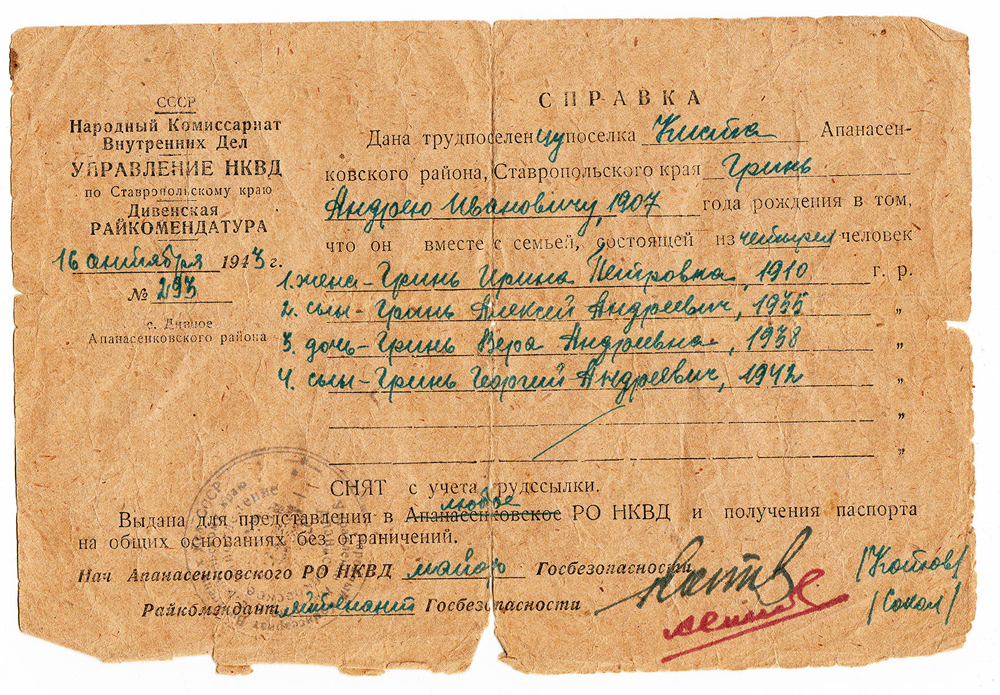 СССР
Народный Комиссариат
Внутренних Дел
УПРАВЛЕНИЕ НКВД
по Ставропольскому краю
Дивенская
РАЙКОМЕНДАТУРА
16 октября 1943 г.
№ 293
с. Дивное
Апанасенковского района
СПРАВКА
Дана трудпоселенцу поселка Киста Апанасен-
ковского района, Ставропольского края Гринь
Андрею Ивановичу, 1907 года рождения в том,
что он вместе с семьей, состоящей из четырех человек
1. жена - Гринь Ирина Петровна, 1910 г. р.
2. сын - Гринь Алексей Андреевич, 1935 „
3. дочь - Гринь Вера Андреевна, 1938 „
4. сын - Гринь Георгий Андреевич, 1942 „
„
„
СНЯТ с учета трудссылки.
любое
Выдана для представления в Апанасенковское РО НКВД и получения паспорта
на общих основаниях без ограничений.
Нач Апанасенковского РО НКВД майор Госбезопасности (Котов)
Райкомендант лейтенант Госбезопасности (Сокол)